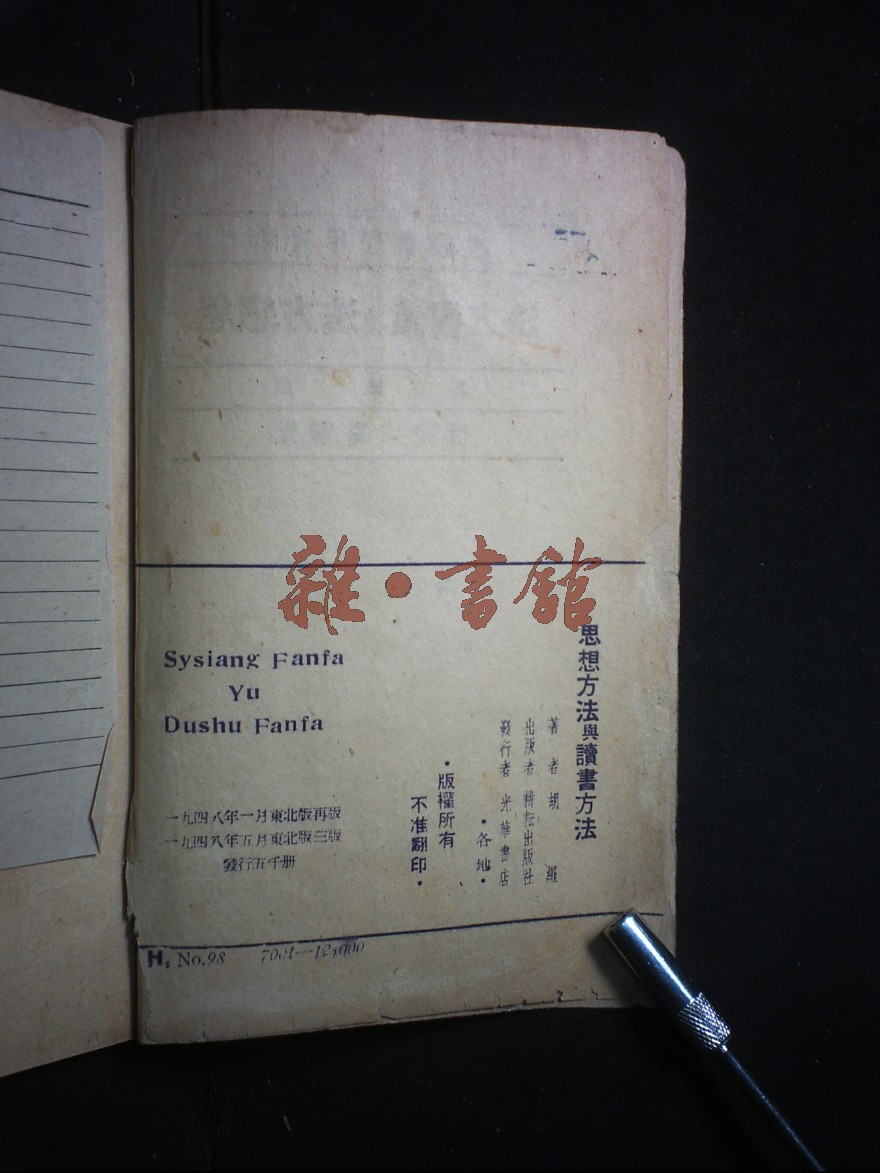 雜·書館
思想方法與讀書方法
著者 胡繩
出版者 耕耘出版社
發行者 光華書店
·各地·
·版權所有
不准翻印·
Sysiang Fanfa
Yu
Dushu Fanfa
一九四八年一月東北版再版
一九四八年五月東北版三版
發行五千册
H, No.98 7001—12,000